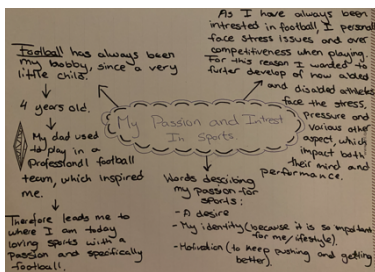 Football has always been
my hobby, since a very
little child.
4 years old.
My dad used
to play in a
Professionl football
team, which inspired
me.
Therefore leads me to
where I am today
loving sports with a
passion and specifically
football.
My Passion and Intrest
In Sports.
As I have always been
intrested in football, I personal
face stress issues and over
competitiveness when playing.
For this reason I wanted to
furter develop of how abled
and disabled athletes
face the stress,
pressure and
various other
aspect, which
impact both
their mind and
performance.
Words describing
my passion for
sports:
- A desire
- My identity (because it is so important
for me/lifestyle).
- Motivation (to keep pushing and getting
better).